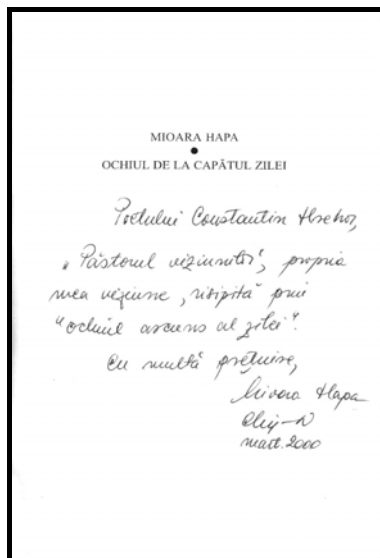 MIOARA HAPA
●
OCHIUL DE LA CAPĂTUL ZILEI
Poetului Constantin Hrehor,
"Păstorul viziunilor", propria
mea viziune, risipită prin
"ochiul ascuns al zilei".
Cu multă prețuire,
Mioara Hapa
Cluj-N
mart. 2000